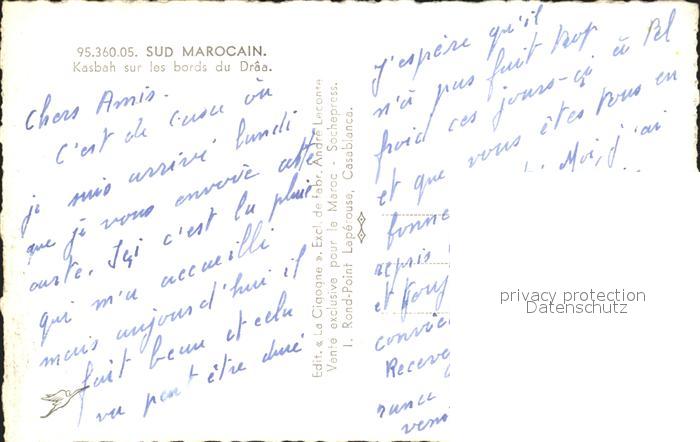 95.360.05. SUD MAROCAIN.
Kasbah sur les bords du Drâa.
Chers Amis.
C'est de Casa où
je suis arrivé lundi
que je vous envoie cette
carte. Ici c'est la pluie
qui m'a accueilli
mais aujourd'hui il
fait beau et cela
va peut être duré
Edit. « La Cigogne ». Excl. de fabr. André Leconte
Vente exclusive pour le Maroc - Sochepress.
1. Rond-Point Lapérouse, Casablanca.
j'espère qu'il
n'a pas fait trop
froid ces jours-çi à Bel
et que vous êtes tous en
bonne
Moi, j'ai
repris
et
Recevez
privacy protection
Datenschutz